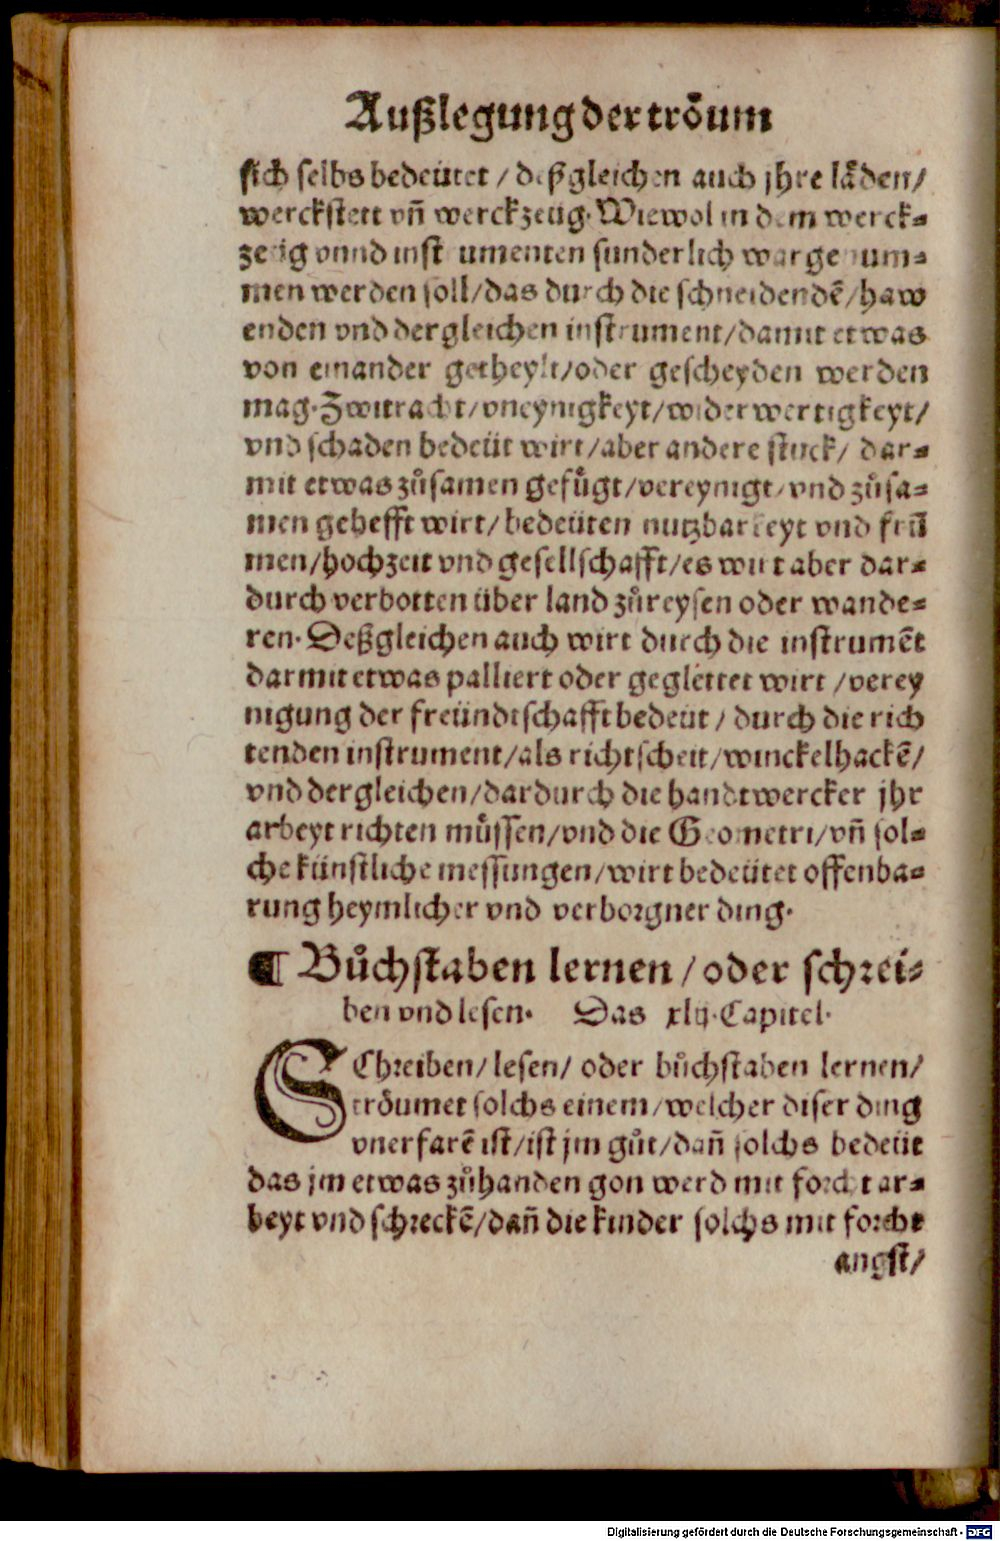 Außlegung der troͤum
sich selbs bedeütet / deßgleichen auch jhre laͤden/
werckstett vñ werckzeug. Wiewol in dem werck-
zeüg vnnd instrumenten sunderlich warge num-
men werden soll/das durch die schneidendē/haw
enden vnd dergleichen instrument/damit etwas
von einander getheylt/oder gescheyden werden
mag. Zwitracht/vneynigkeyt/widerwertigkeyt/
vnd schaden bedeüt wirt/aber andere stuck/ dar-
mit etwas zuͦsamen gefuͤgt/vereynigt/vnd zuͦsa-
men gehefft wirt/bedeüten nutzbarkeyt vnd frū
men/hochzeit vnd gesellschafft/es wirt aber dar-
durch verbotten über land zuͦreysen oder wande-
ren. Deßgleichen auch wirt durch die instrumēt
darmit etwas palliert oder geglettet wirt /verey
nigung der freündtschafft bedeüt / durch die rich
tenden instrument/als richtscheit/winckelhackē/
vnd dergleichen/dardurch die handtwercker jhr
arbeyt richten muͤssen/vnd die Geometri/vñ sol-
che künstliche messungen/wirt bedeütet offenba-
rung heymlicher vnd verborgner ding.
¶ Buͦchstaben lernen/oder schrei-
ben vnd lesen. Das xlij. Capitel.
SChreiben/lesen/ oder buͦchstaben lernen/
troͤumet solchs einem/welcher diser ding
vnerfarē ist/ist jm guͦt/dañ solchs bedeüt
das jm etwas zuͦhanden gon werd mit forcht ar-
beyt vnd schreckē/dañ die kinder solchs mit forcht
angst/
Digitalisierung gefördert durch die Deutsche Forschungsgemeinschaft - DFG